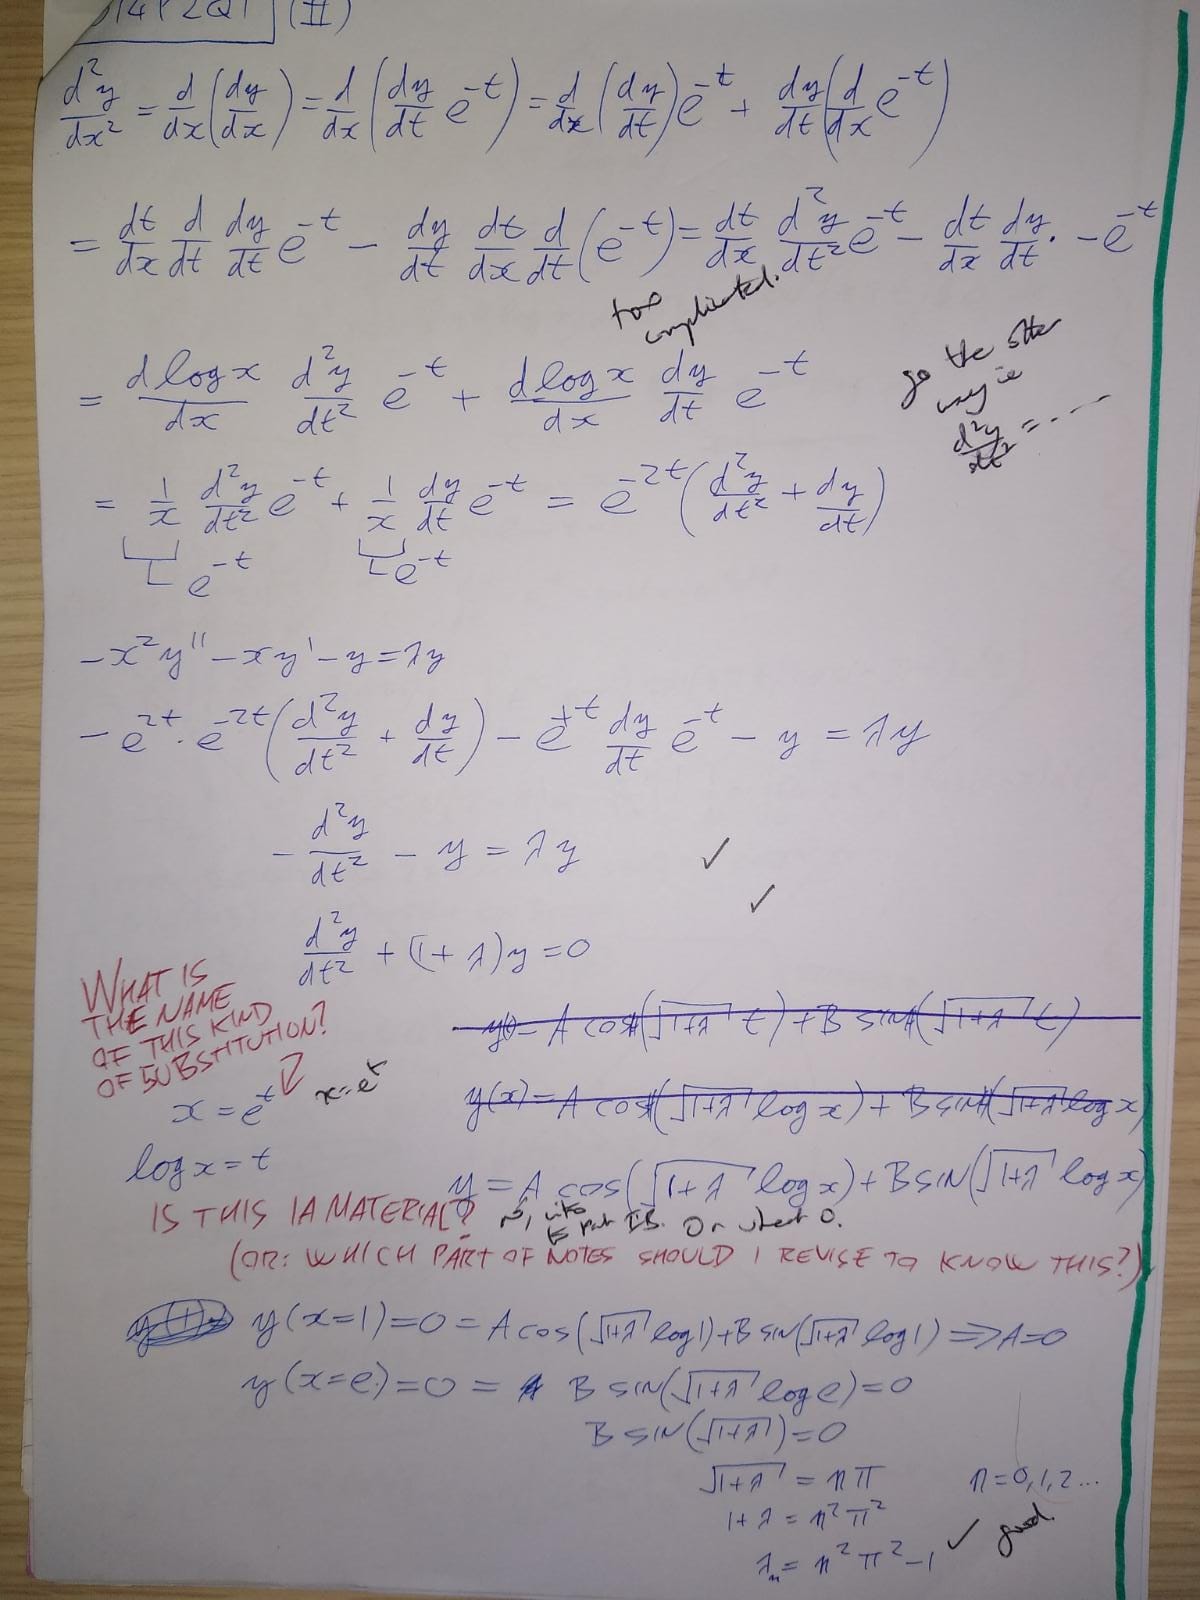 014P2Q1 (II)
d²y/dx² = d/dx (dy/dx) = d/dx (dy/dt e^-t) = d/dx (dy/dt) e^-t + dy/dt (d/dx e^-t)
= dt/dx d/dt dy/dt e^-t − dy/dt dt/dx d/dt (e^-t) = dt/dx d²y/dt² e^-t − dt/dx dy/dt · −e^-t
too complicated.
go the other way ie
d²y/dt² = ----
= d log x/dx d²y/dt² e^-t + d log x/dx dy/dt e^-t
= 1/x d²y/dt² e^-t + 1/x dy/dt e^-t = e^-2t (d²y/dt² + dy/dt)
e^-t e^-t
−x²y'' − xy' − y = λy
−e^2t · e^-2t (d²y/dt² + dy/dt) − e^+t dy/dt e^-t − y = λy
−d²y/dt² − y = λy ✓
✓
d²y/dt² + (1+λ)y = 0
WHAT IS
THE NAME
OF THIS KIND
OF SUBSTITUTION?
y = A cosh(√1+λ t) + B sinh(√1+λ t)
x = e^t x=e^t
y(x) = A cosh(√1+λ log x) + B sinh(√1+λ log x)
log x = t
y = A cos(√1+λ log x) + B sin(√1+λ log x)
IS THIS IA MATERIAL? No, IB. Or sheet 0.
(OR: WHICH PART OF NOTES SHOULD I REVISE TO KNOW THIS?)
y(x=1) = 0 = A cos(√1+λ log 1) + B sin(√1+λ log 1) ⇒ A=0
y(x=e) = 0 = B sin(√1+λ log e) = 0
B sin(√1+λ) = 0
√1+λ = nπ n=0,1,2...
1+λ = n²π²
λₙ = n²π²−1 ✓ good.